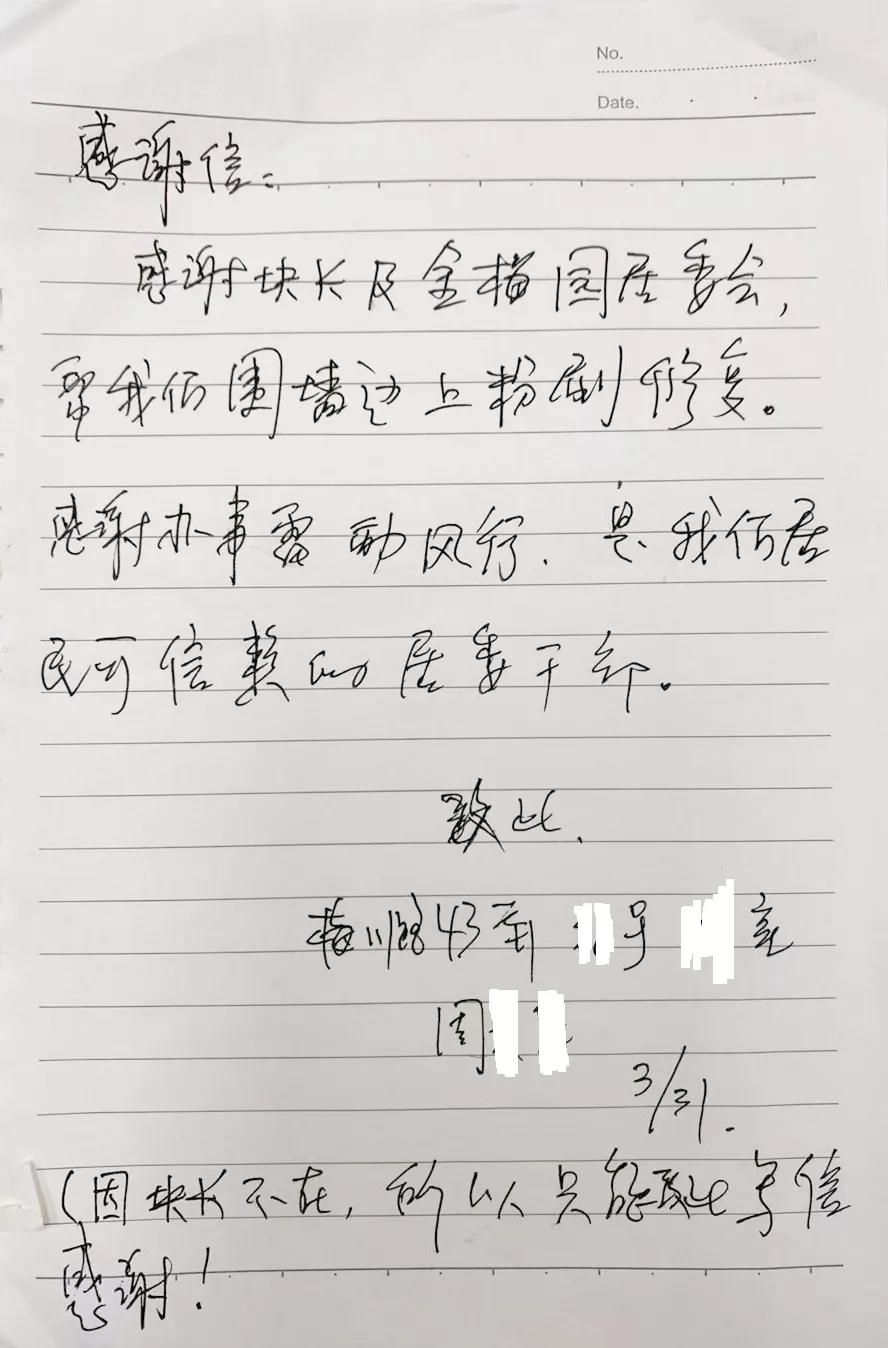 No.
Date.
感谢信：
感谢块长及金梅园居委会，
帮我们围墙边上粉刷修复。
感谢办事雷动风行．是我们居
民可信赖的居委干部。
致此．
梅川路43弄 号 室
周
3/31.
（因块长不在，所以只能致此写信
感谢！